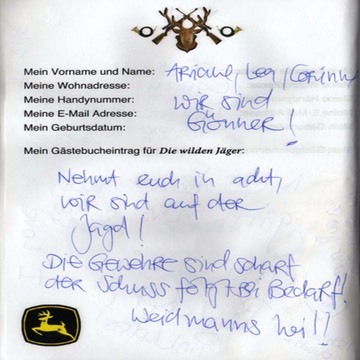 Mein Vorname und Name: Ariane, Lea, Corinn
Meine Wohnadresse:
Meine Handynummer: wir sind
Meine E-Mail Adresse: Gönner!
Mein Geburtsdatum:
Mein Gästebucheintrag für Die wilden Jäger:
Nehmt euch in acht,
wir sind auf der
Jagd!
Die Gewehre sind scharf
der Schuss folgt bei Bedarf!
Weidmanns heil!!